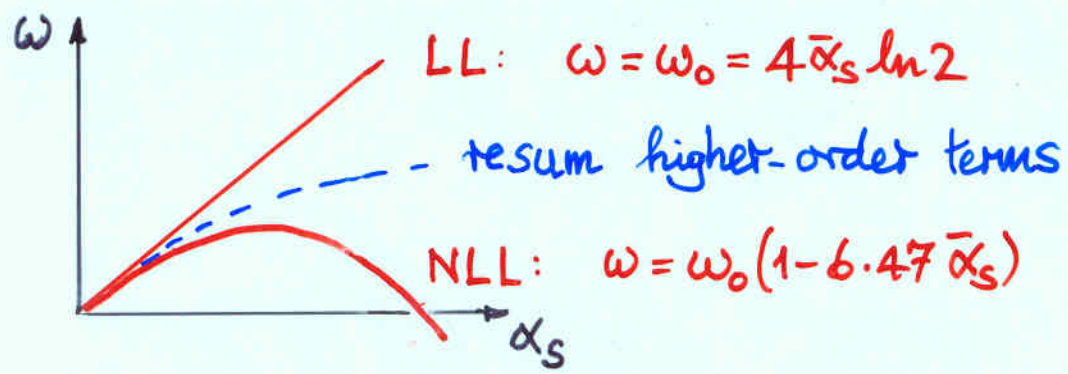 ω
LL: ω = ω₀ = 4ᾱₛ ln 2
resum higher-order terms
NLL: ω = ω₀(1-6·47 ᾱₛ)
αₛ